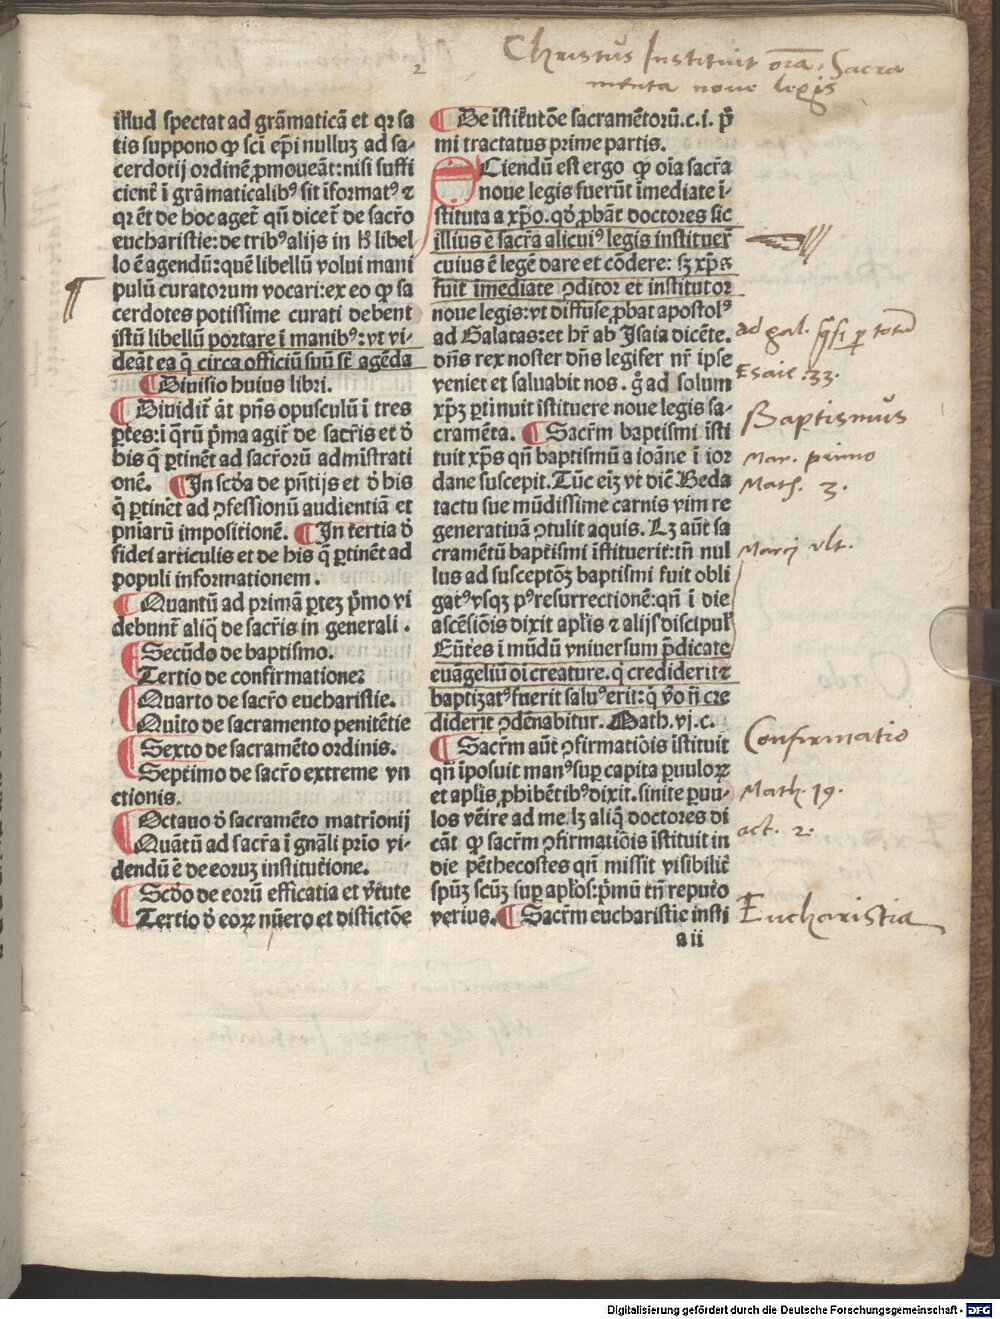 2
Christus Instituit oīa Sacra
menta noue legis
illud spectat ad grāmaticā et qꝛ sa
tis suppono ꝙ sc̄i ep̄i nulluꝫ ad sa⸗
cerdotij ordinē ꝓmoueāt: nisi suffi
cient̄ ī grāmaticalibꝰ sit īformatꝰ ⁊
qꝛ ēt de hoc aget̄ qn̄ dicet̄ de sacr̄o
eucharistie: de tribꝰ alijs in h̄ libel
lo ē agendū: quē libellū volui mani
pulū curatorum vocari: ex eo ꝙ sa
cerdotes potissime curati debent
istū libellū portare ī manibꝰ: vt vi⸗
deāt ea q̄ circa officiū suū sūt agēda
¶ Diuisio huius libri.
¶ Diuidit̄ āt pn̄s opusculū ī tres
ꝑtes: ī qͣrū pͥma agit̄ de sacr̄is et ď
his q̄ ꝑtinēt ad sacr̄orū admīstrati
onē. ¶ In scďa de pn̄tijs et ď his
q̄ ꝑtinēt ad ꝯfessionū audientiā et
pn̄iarū impositionē. ¶ In tertia ď
fidei articulis et de his q̄ ꝑtinēt ad
populi informationem.
¶ Quantū ad primā ꝑteꝫ pͥmo vi
debunt̄ aliq̄ de sacr̄is in generali.
¶ Secūdo de baptismo.
Tertio de confirmatione:
¶ Quarto de sacr̄o eucharistie.
Quīto de sacramento penitētie
¶ Sexto de sacramēto ordinis.
Septimo de sacr̄o extreme vn
ctionis.
¶ Octauo ď sacramēto matrionij
Quātū ad sacr̄a ī gn̄ali prīo vi⸗
dendū ē de eoruꝫ institutione.
¶ Scďo de eorū efficatia et v̄tute
Tertio ď eoꝝ nūero et distictōe
¶ De īstitutōe sacramētorū. c. i. pͥ
mi tractatus prime partis.
SCiendū est ergo ꝙ oīa sacr̄a
noue legis fuerūt īmediate ī⸗
stituta a xp̄o. qď ꝓbāt doctores sic
illius ē sacr̄a alicuiꝰ legis instituer̄
cuius ē legē dare et cōdere: sꝫ xp̄s
fuit īmediate ꝯditor et institutor
noue legis: vt diffuse ꝓbat apostolꝰ
ad Galatas: et hr̄ ab Isaia dicēte.
dn̄s rex noster dn̄s legifer nr̄ ipse
veniet et saluabit nos. gͦ ad solum
xp̄ꝫ ꝑtinuit īstituere noue legis sa⸗
cramēta. ¶ Sacr̄m baptismi īsti
tuit xp̄s qn̄ baptismū a ioāne ī ior
dane suscepit. Tūc eiꝫ vt dic̄ Beda
tactu sue mūdissime carnis vim re
generatiuā ꝯtulit aquis. Lꝫ aūt sa
cramētū baptismi īstituerit: tn̄ nul
lus ad susceptōꝫ baptismi fuit obli
gatꝰ vsqꝫ pꝰ resurrectionē: qn̄ ī die
ascēsiōis dixit apl̄is ⁊ alijs discipul̄
Eūtes ī mūdū vniuersum p̄dicate
euāgeliū oī creature. q̄ crediderit ⁊
baptizatꝰ fuerit saluꝰ erit: q̄ v̄o nō cre
diderit ꝯdēnabitur. Math. vj. c.
¶ Sacr̄m aūt ꝯfirmatiōis īstituit
qn̄ īposuit manꝰ suꝑ capita ꝑuuloꝝ
et apl̄is ꝓhibētibꝰ dixit. sinite ꝑuu⸗
los vēire ad me. lꝫ aliq̄ doctores di
cāt ꝙ sacr̄m ꝯfirmatiōis īstituit in
die pēthecostes qn̄ missit visibilit̄
spūꝫ scūꝫ suꝑ apl̄os: pͥmū tn̄ reputo
verius. ¶ Sacr̄m eucharistie insti
a ii
ad gal. per totū
Esaie. 33.
Baptismus
Mar. primo
Math. 3.
Marci vlt.
Confirmatio
Math. 19.
act. 2.
Eucharistia
Digitalisierung gefördert durch die Deutsche Forschungsgemeinschaft - DFG